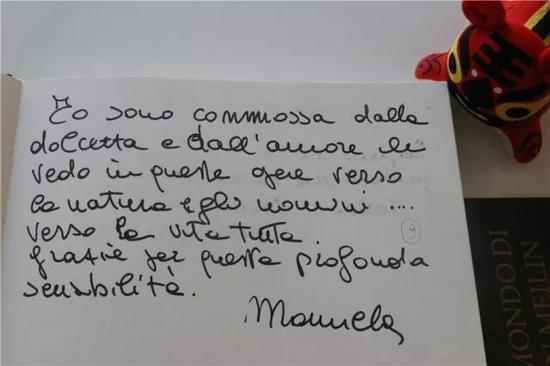 Io sono commossa dalla
dolcezza e dall'amore che
vedo in queste opere verso
la natura e gli uomini ...
verso la vita tutta.
9
Grazie per questa profonda
sensibilità.
Manuela
MONDO DI
MEILIN